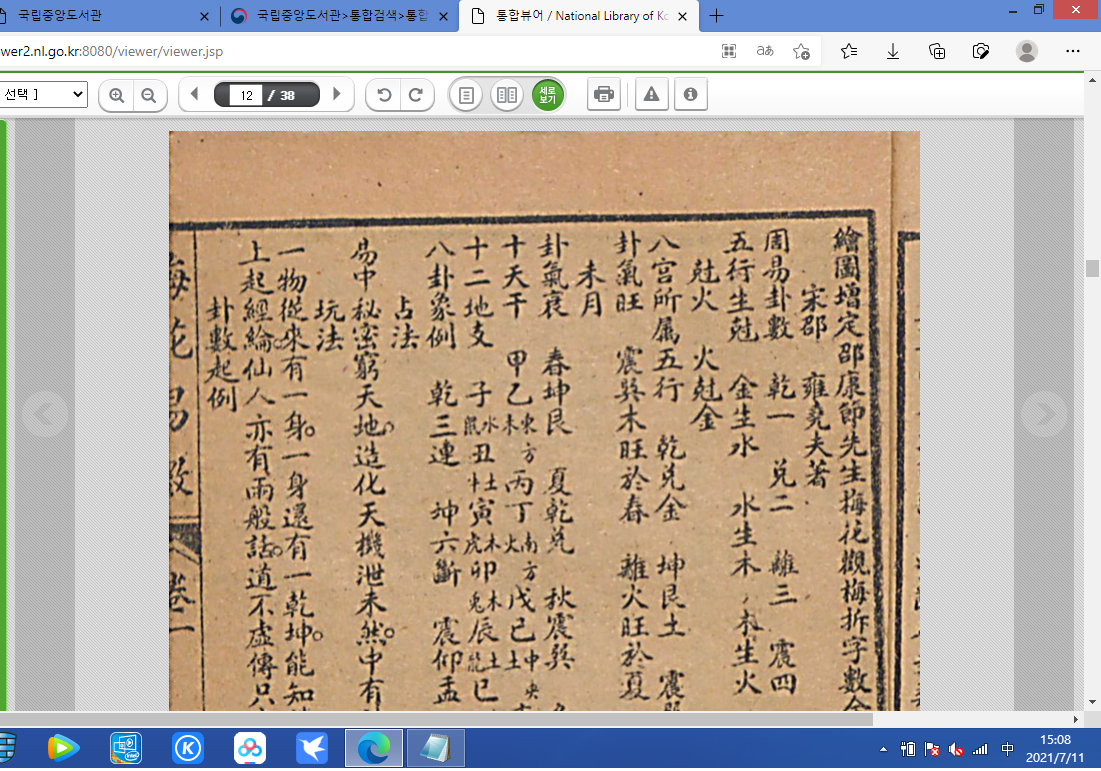 국립중앙도서관
국립중앙도서관>통합검색>통합
통합뷰어 / National Library of Ko
wer2.nl.go.kr:8080/viewer/viewer.jsp
선택 ]
12 / 38
세로
보기
繪圖增定邵康節先生梅花觀梅拆字數全
宋邵 雍堯夫著
周易卦數 乾一 兑二 離三 震四
五行生尅 金生水 水生木 木生火
尅火 火尅金
八宮所属五行 乾兑金 坤艮土 震巽
卦氣旺 震巽木旺於春 離火旺於夏
未月
卦氣衰 春坤艮 夏乾兑 秋震巽
十天干 甲乙東方木 丙丁南方火 戊己中央土
十二地支 子水鼠丑土牛寅木虎卯木兎辰土龍巳
八卦象例 乾三連 坤六斷 震仰盂
占法
易中秘密窮天地。造化天機泄未然。中有
玩法
一物從來有一身。一身還有一乾坤。能知
上起經綸仙人亦有兩般話。道不虛傳只
卦數起例
梅花易數 卷一
15:08
中
2021/7/11